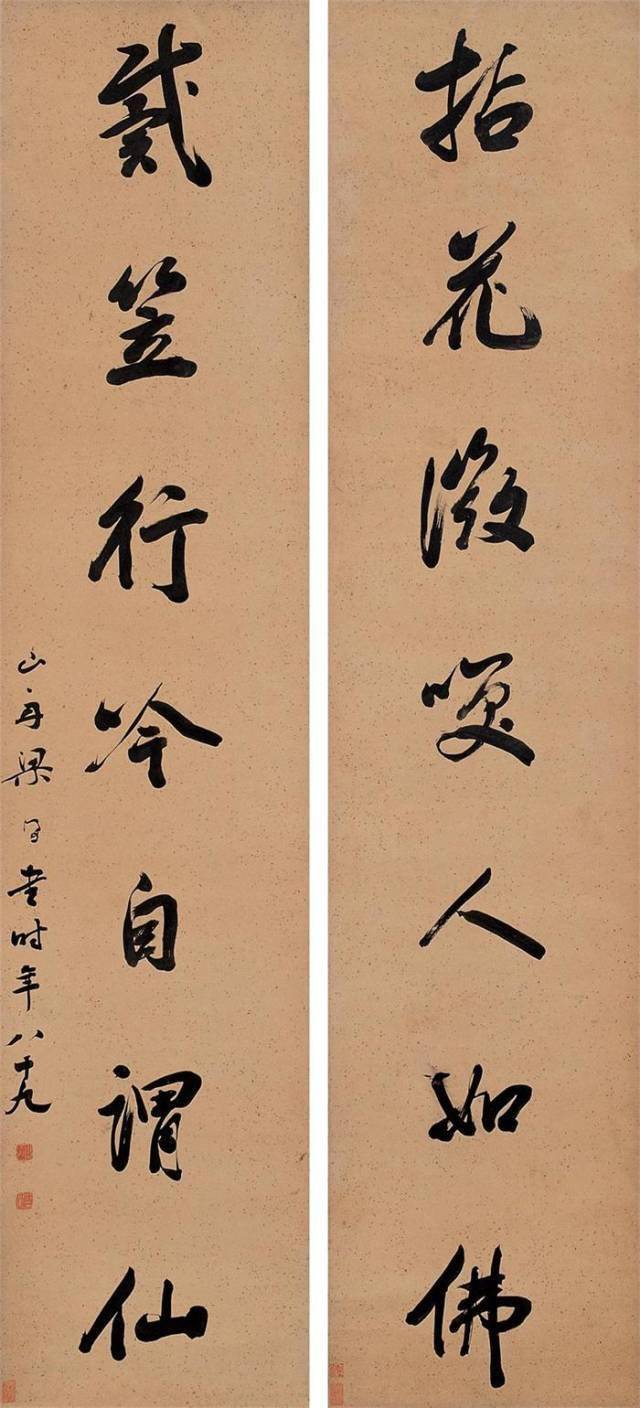 拈花微笑人如佛
戴笠行吟自谓仙
山舟梁同书时年八十九